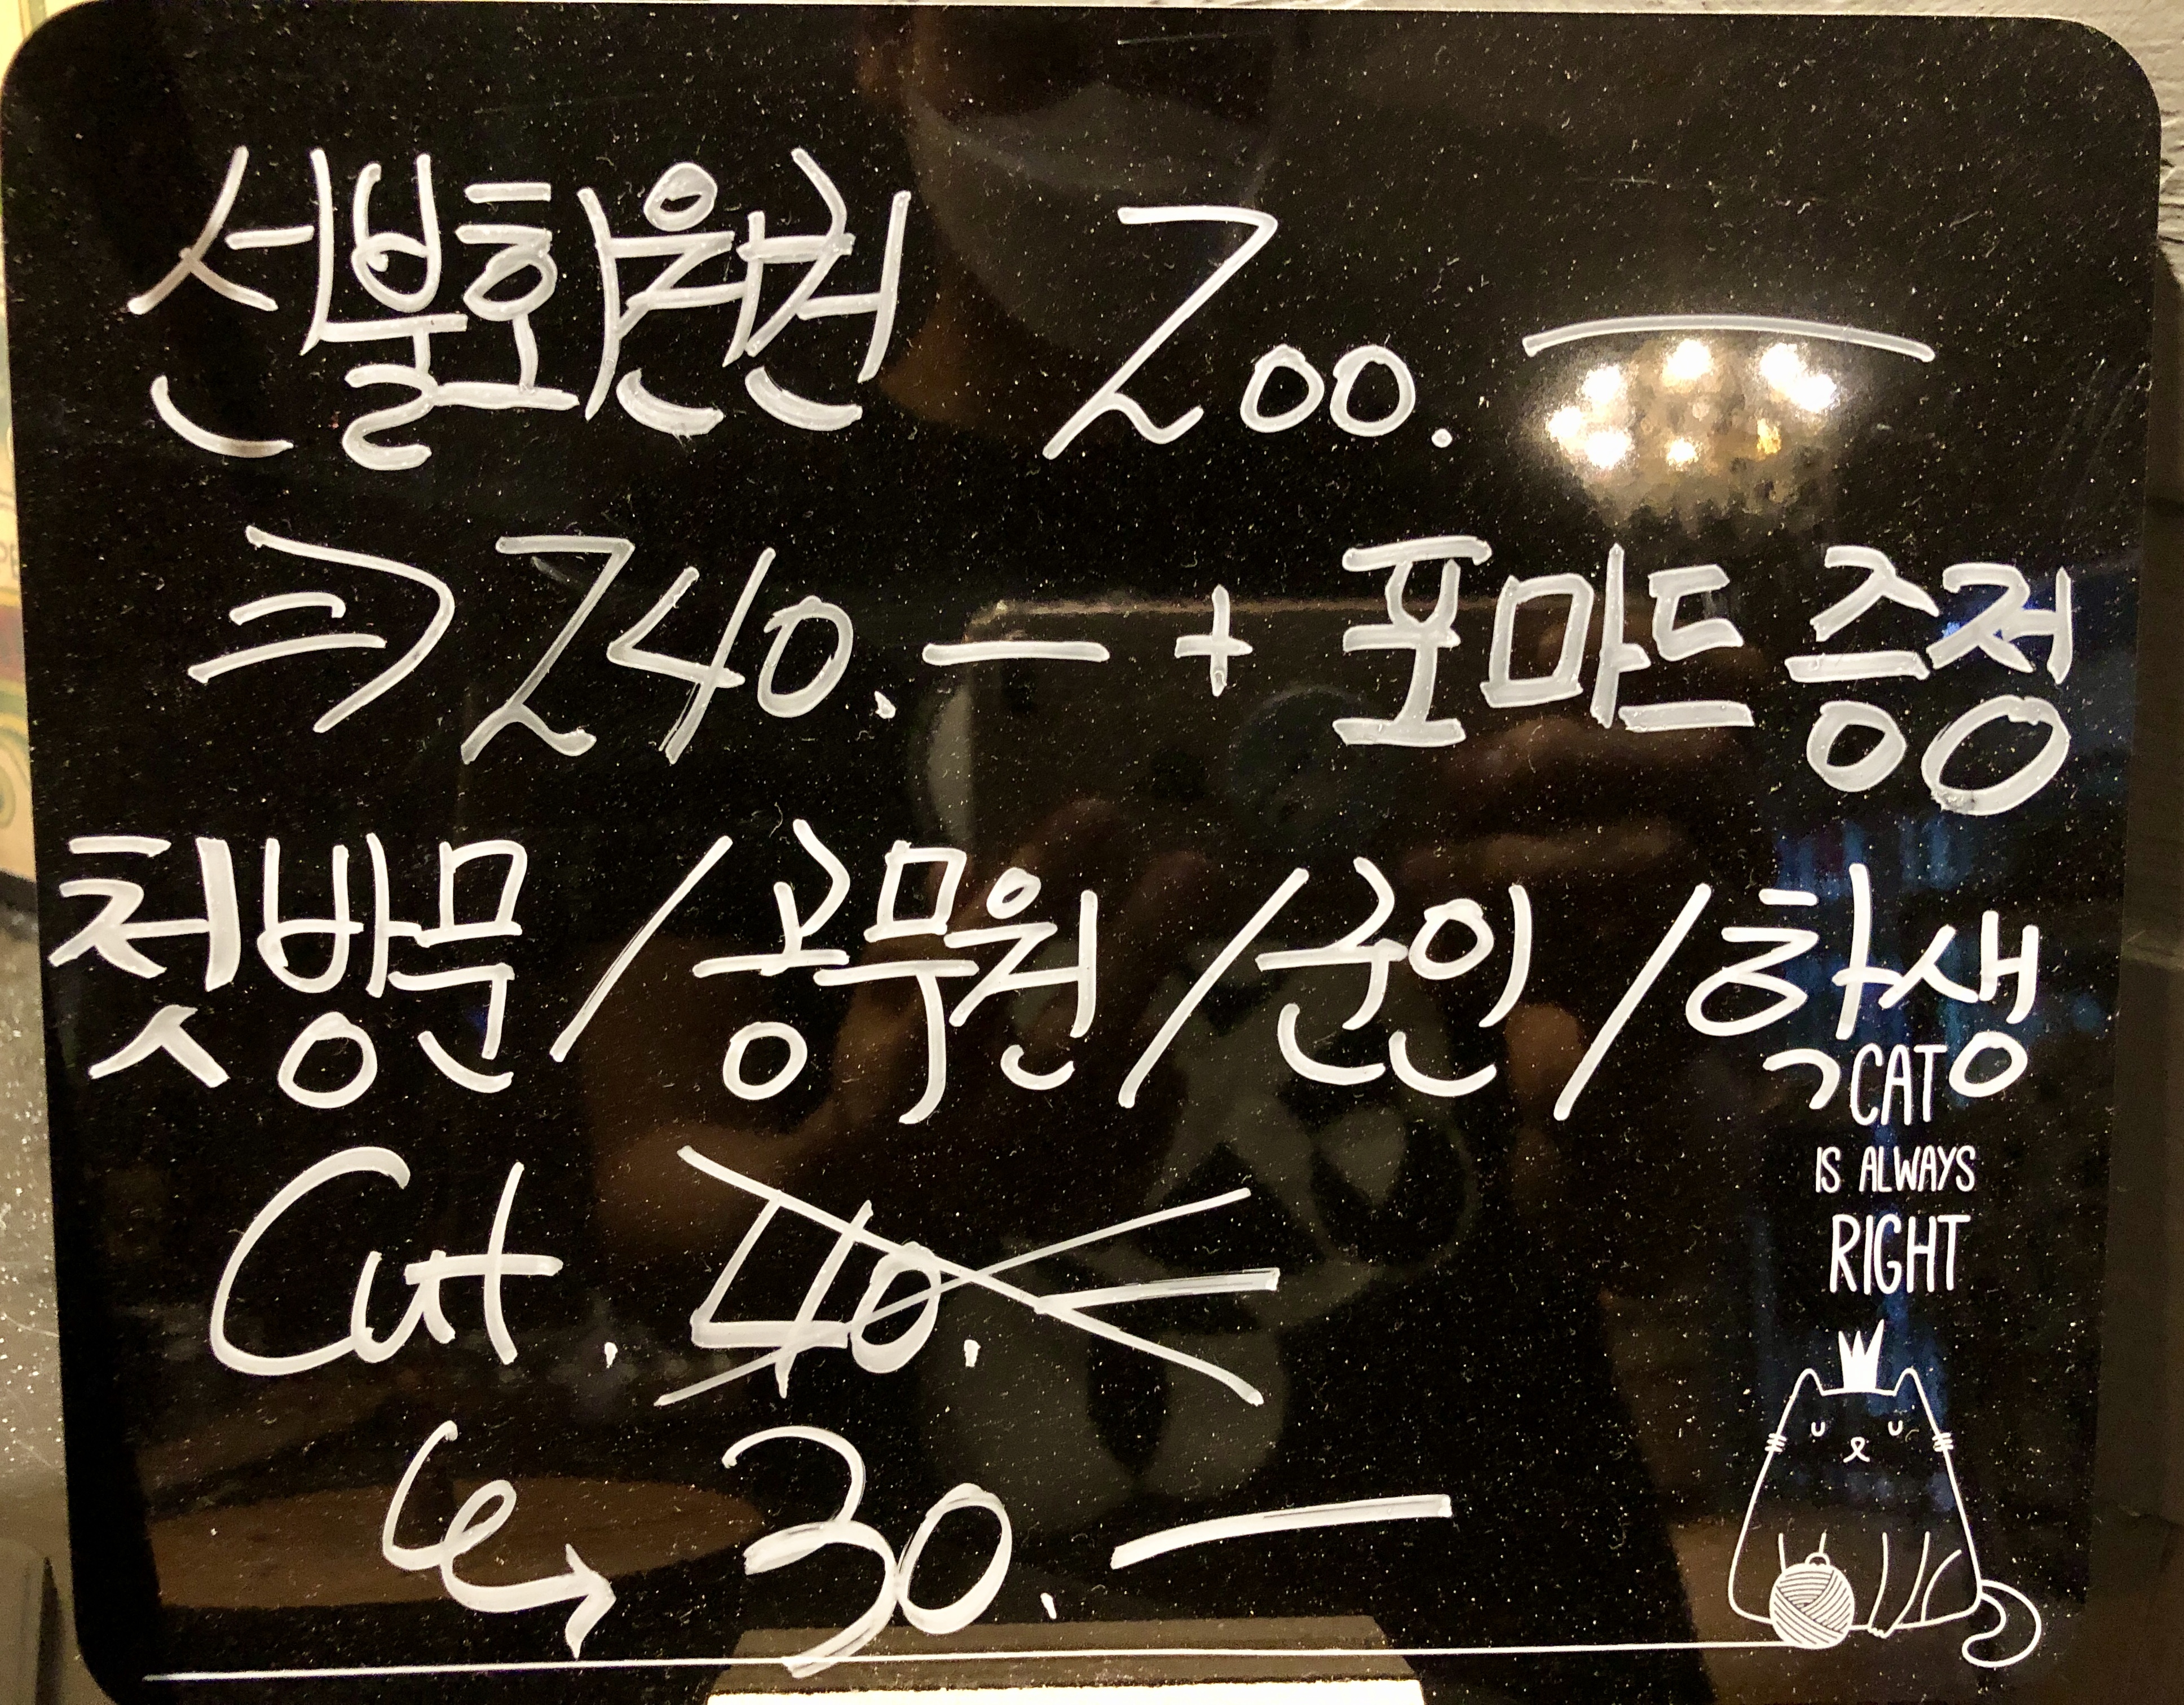 선불회원권 200.—
⇒ 240.— + 포마드 증정
첫방문 / 공무원 / 군인 / 학생
Cut. 40.
↳ 30.—
CAT
IS ALWAYS
RIGHT